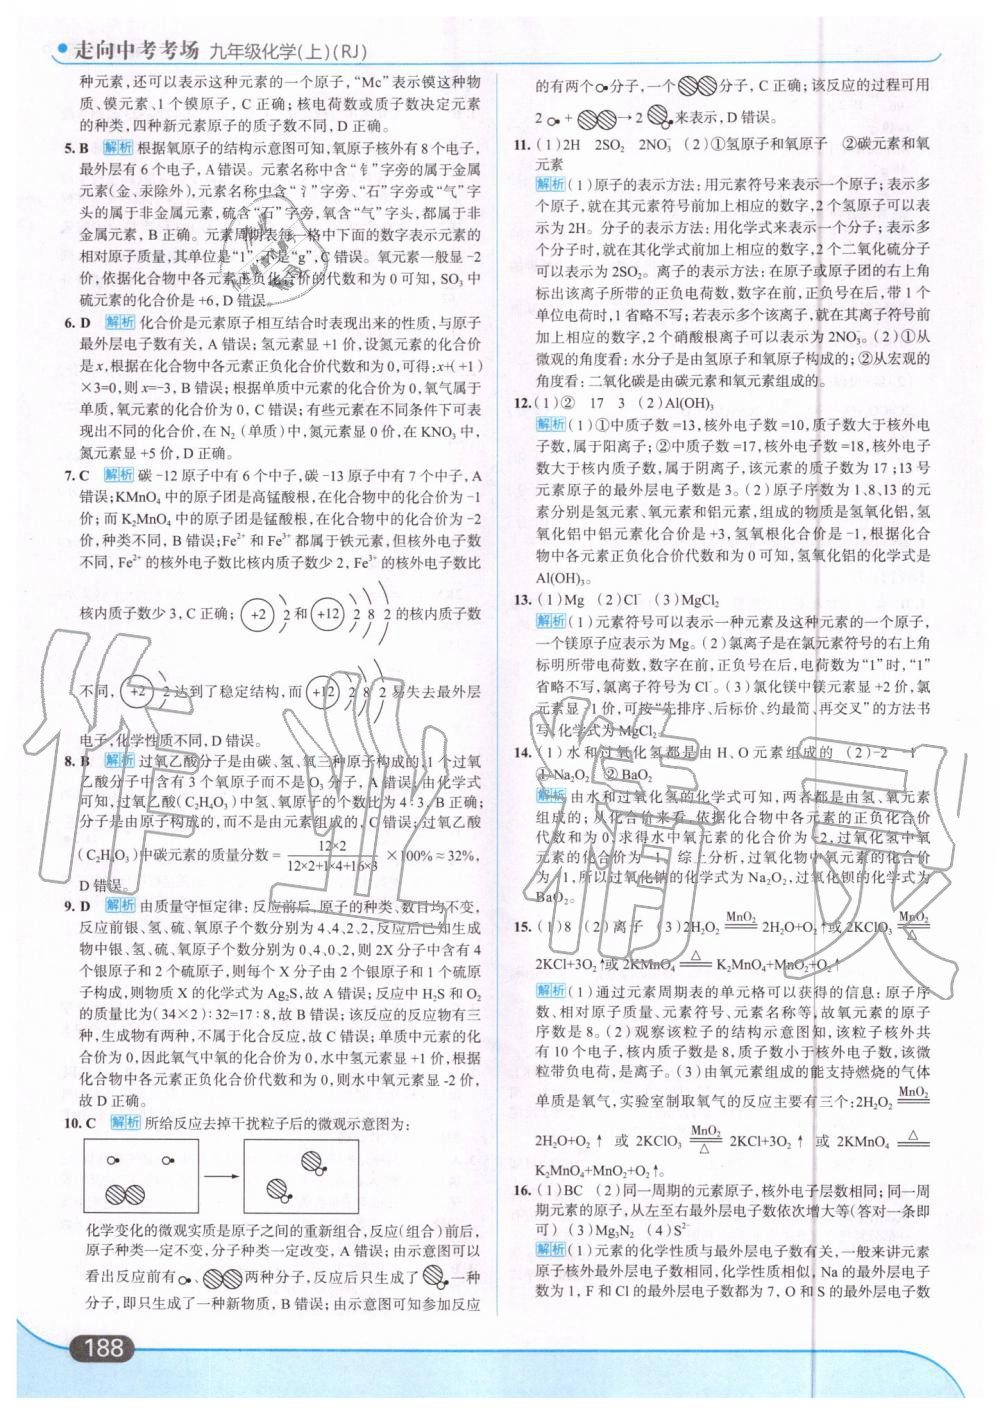 走向中考考场 九年级化学(上)(RJ)
种元素,还可以表示这种元素的一个原子,“Mc”表示镆这种物
质、镆元素、1个镆原子,C正确;核电荷数或质子数决定元素
的种类,四种新元素原子的质子数不同,D正确。
5. B 解析 根据氧原子的结构示意图可知,氧原子核外有8个电子,
最外层有6个电子,A错误。元素名称中含“钅”字旁的属于金属
元素(金、汞除外),元素名称中含“氵”字旁、“石”字旁或“气”字
头的属于非金属元素,硫含“石”字旁,氧含“气”字头,都属于非
金属元素,B正确。元素周期表每一格中下面的数字表示元素的
相对原子质量,其单位是“1”,不是“g”,C错误。氧元素一般显-2
价,依据化合物中各元素正负化合价的代数和为0可知,SO₃中
硫元素的化合价是+6,D错误。
6. D 解析 化合价是元素原子相互结合时表现出来的性质,与原子
最外层电子数有关,A错误;氢元素显+1价,设氮元素的化合价
是x,根据在化合物中各元素正负化合价代数和为0,可得:x+(+1)
×3=0,则x=-3,B错误;根据单质中元素的化合价为0,氧气属于
单质,氧元素的化合价为0,C错误;有些元素在不同条件下可表
现出不同的化合价,在N₂(单质)中,氮元素显0价,在KNO₃中,
氮元素显+5价,D正确。
7. C 解析 碳-12原子中有6个中子,碳-13原子中有7个中子,A
错误;KMnO₄中的原子团是高锰酸根,在化合物中的化合价为-1
价;而K₂MnO₄中的原子团是锰酸根,在化合物中的化合价为-2
价,种类不同,B错误;Fe²⁺和Fe³⁺都属于铁元素,但核外电子数
不同,Fe²⁺的核外电子数比核内质子数少2,Fe³⁺的核外电子数比
核内质子数少3,C正确; +2 2 和 +12 2 8 2 的核内质子数
不同, +2 2 达到了稳定结构,而 +12 2 8 2 易失去最外层
电子,化学性质不同,D错误。
8. B 解析 过氧乙酸分子是由碳、氢、氧三种原子构成的,1个过氧
乙酸分子中含有3个氧原子而不是O₃分子,A错误;由化学式
可知,过氧乙酸(C₂H₄O₃)中氢、氧原子的个数比为4:3,B正确;
分子是由原子构成的,而不是由元素组成的,C错误;过氧乙酸
(C₂H₄O₃)中碳元素的质量分数= 12×2/12×2+1×4+16×3 ×100%≈32%,
D错误。
9. D 解析 由质量守恒定律:反应前后,原子的种类、数目均不变,
反应前银、氢、硫、氧原子个数分别为4、4、2、2,反应后已知生成
物中银、氢、硫、氧原子个数分别为0、4、0、2,则2X分子中含有4
个银原子和2个硫原子,则每个X分子由2个银原子和1个硫原
子构成,则物质X的化学式为Ag₂S,故A错误;反应中H₂S和O₂
的质量比为(34×2):32=17:8,故B错误;该反应的反应物有三
种,生成物有两种,不属于化合反应,故C错误;单质中元素的化
合价为0,因此氧气中氧的化合价为0,水中氢元素显+1价,根据
化合物中各元素正负化合价代数和为0,则水中氧元素显-2价,
故D正确。
10. C 解析 所给反应去掉干扰粒子后的微观示意图为:
化学变化的微观实质是原子之间的重新组合,反应(组合)前后,
原子种类一定不变,分子种类一定改变,A错误;由示意图可以
看出反应前有 、 两种分子,反应后只生成了 一种
分子,即只生成了一种新物质,B错误;由示意图可知参加反应
的有两个 分子,一个 分子,C正确;该反应的过程可用
2 + → 2 来表示,D错误。
11. (1)2H 2SO₂ 2NO₃⁻ (2)①氢原子和氧原子 ②碳元素和氧
元素
解析 (1)原子的表示方法:用元素符号来表示一个原子;表示多
个原子,就在其元素符号前加上相应的数字,2个氢原子可以表
示为2H。分子的表示方法:用化学式来表示一个分子;表示多
个分子时,就在其化学式前加上相应的数字,2个二氧化硫分子
可以表示为2SO₂。离子的表示方法:在原子或原子团的右上角
标出该离子所带的正负电荷数,数字在前,正负号在后,带1个
单位电荷时,1省略不写;若表示多个该离子,就在其离子符号前
加上相应的数字,2个硝酸根离子可以表示为2NO₃⁻。(2)①从
微观的角度看:水分子是由氢原子和氧原子构成的;②从宏观的
角度看:二氧化碳是由碳元素和氧元素组成的。
12. (1)② 17 3 (2)Al(OH)₃
解析 (1)①中质子数=13,核外电子数=10,质子数大于核外电
子数,属于阳离子;②中质子数=17,核外电子数=18,核外电子
数大于核内质子数,属于阴离子,该元素的质子数为17;13号
元素原子的最外层电子数是3。(2)原子序数为1、8、13的元
素分别是氢元素、氧元素和铝元素,组成的物质是氢氧化铝,氢
氧化铝中铝元素化合价是+3,氢氧根化合价是-1,根据化合
物中各元素正负化合价代数和为0可知,氢氧化铝的化学式是
Al(OH)₃。
13. (1)Mg (2)Cl⁻ (3)MgCl₂
解析 (1)元素符号可以表示一种元素及这种元素的一个原子,
一个镁原子应表示为Mg。(2)氯离子是在氯元素符号的右上角
标明所带的正负电荷数,数字在前,正负号在后,电荷数为“1”时,“1”
省略不写,氯离子符号为Cl⁻。(3)氯化镁中镁元素显+2价,氯
元素显-1价,可按“先排序、后标价、约最简、再交叉”的方法书
写,化学式为MgCl₂。
14. (1)水和过氧化氢都是由H、O元素组成的 (2)-2 -1
①Na₂O₂ ②BaO₂
解析 由水和过氧化氢的化学式可知,两者都是由氢、氧元素
组成的;从化合价来看,依据化合物中各元素的正负化合价
代数和为0,求得水中氧元素的化合价为-2,过氧化氢中氧
元素的化合价为-1。综上分析,过氧化物中氧元素的化合价
为-1,所以过氧化钠的化学式为Na₂O₂,过氧化钡的化学式为
BaO₂。
15. (1)8 (2)离子 (3)2H₂O₂ =MnO₂= 2H₂O+O₂↑或2KClO₃ =MnO₂/△=
2KCl+3O₂↑或2KMnO₄ =△= K₂MnO₄+MnO₂+O₂↑
解析 (1)通过元素周期表的单元格可以获得的信息:原子序
数、相对原子质量、元素符号、元素名称等,故氧元素的原子
序数是8。(2)观察该粒子的结构示意图知,该粒子核外共
有10个电子,核内质子数是8,质子数小于核外电子数,该微
粒带负电荷,是离子。(3)由氧元素组成的能支持燃烧的气体
单质是氧气,实验室制取氧气的反应主要有三个:2H₂O₂ =MnO₂=
2H₂O+O₂↑ 或 2KClO₃ =MnO₂/△= 2KCl+3O₂↑ 或 2KMnO₄ =△=
K₂MnO₄+MnO₂+O₂↑。
16. (1)BC (2)同一周期的元素原子,核外电子层数相同;同一周
期元素的原子,从左至右最外层电子数依次增大等(答对一条即
可) (3)Mg₃N₂ (4)S²⁻
解析 (1)元素的化学性质与最外层电子数有关,一般来讲元素
原子核外最外层电子数相同,化学性质相似,Na的最外层电子
数为1,F和Cl的最外层电子数都为7,O和S的最外层电子数
188
作业精灵